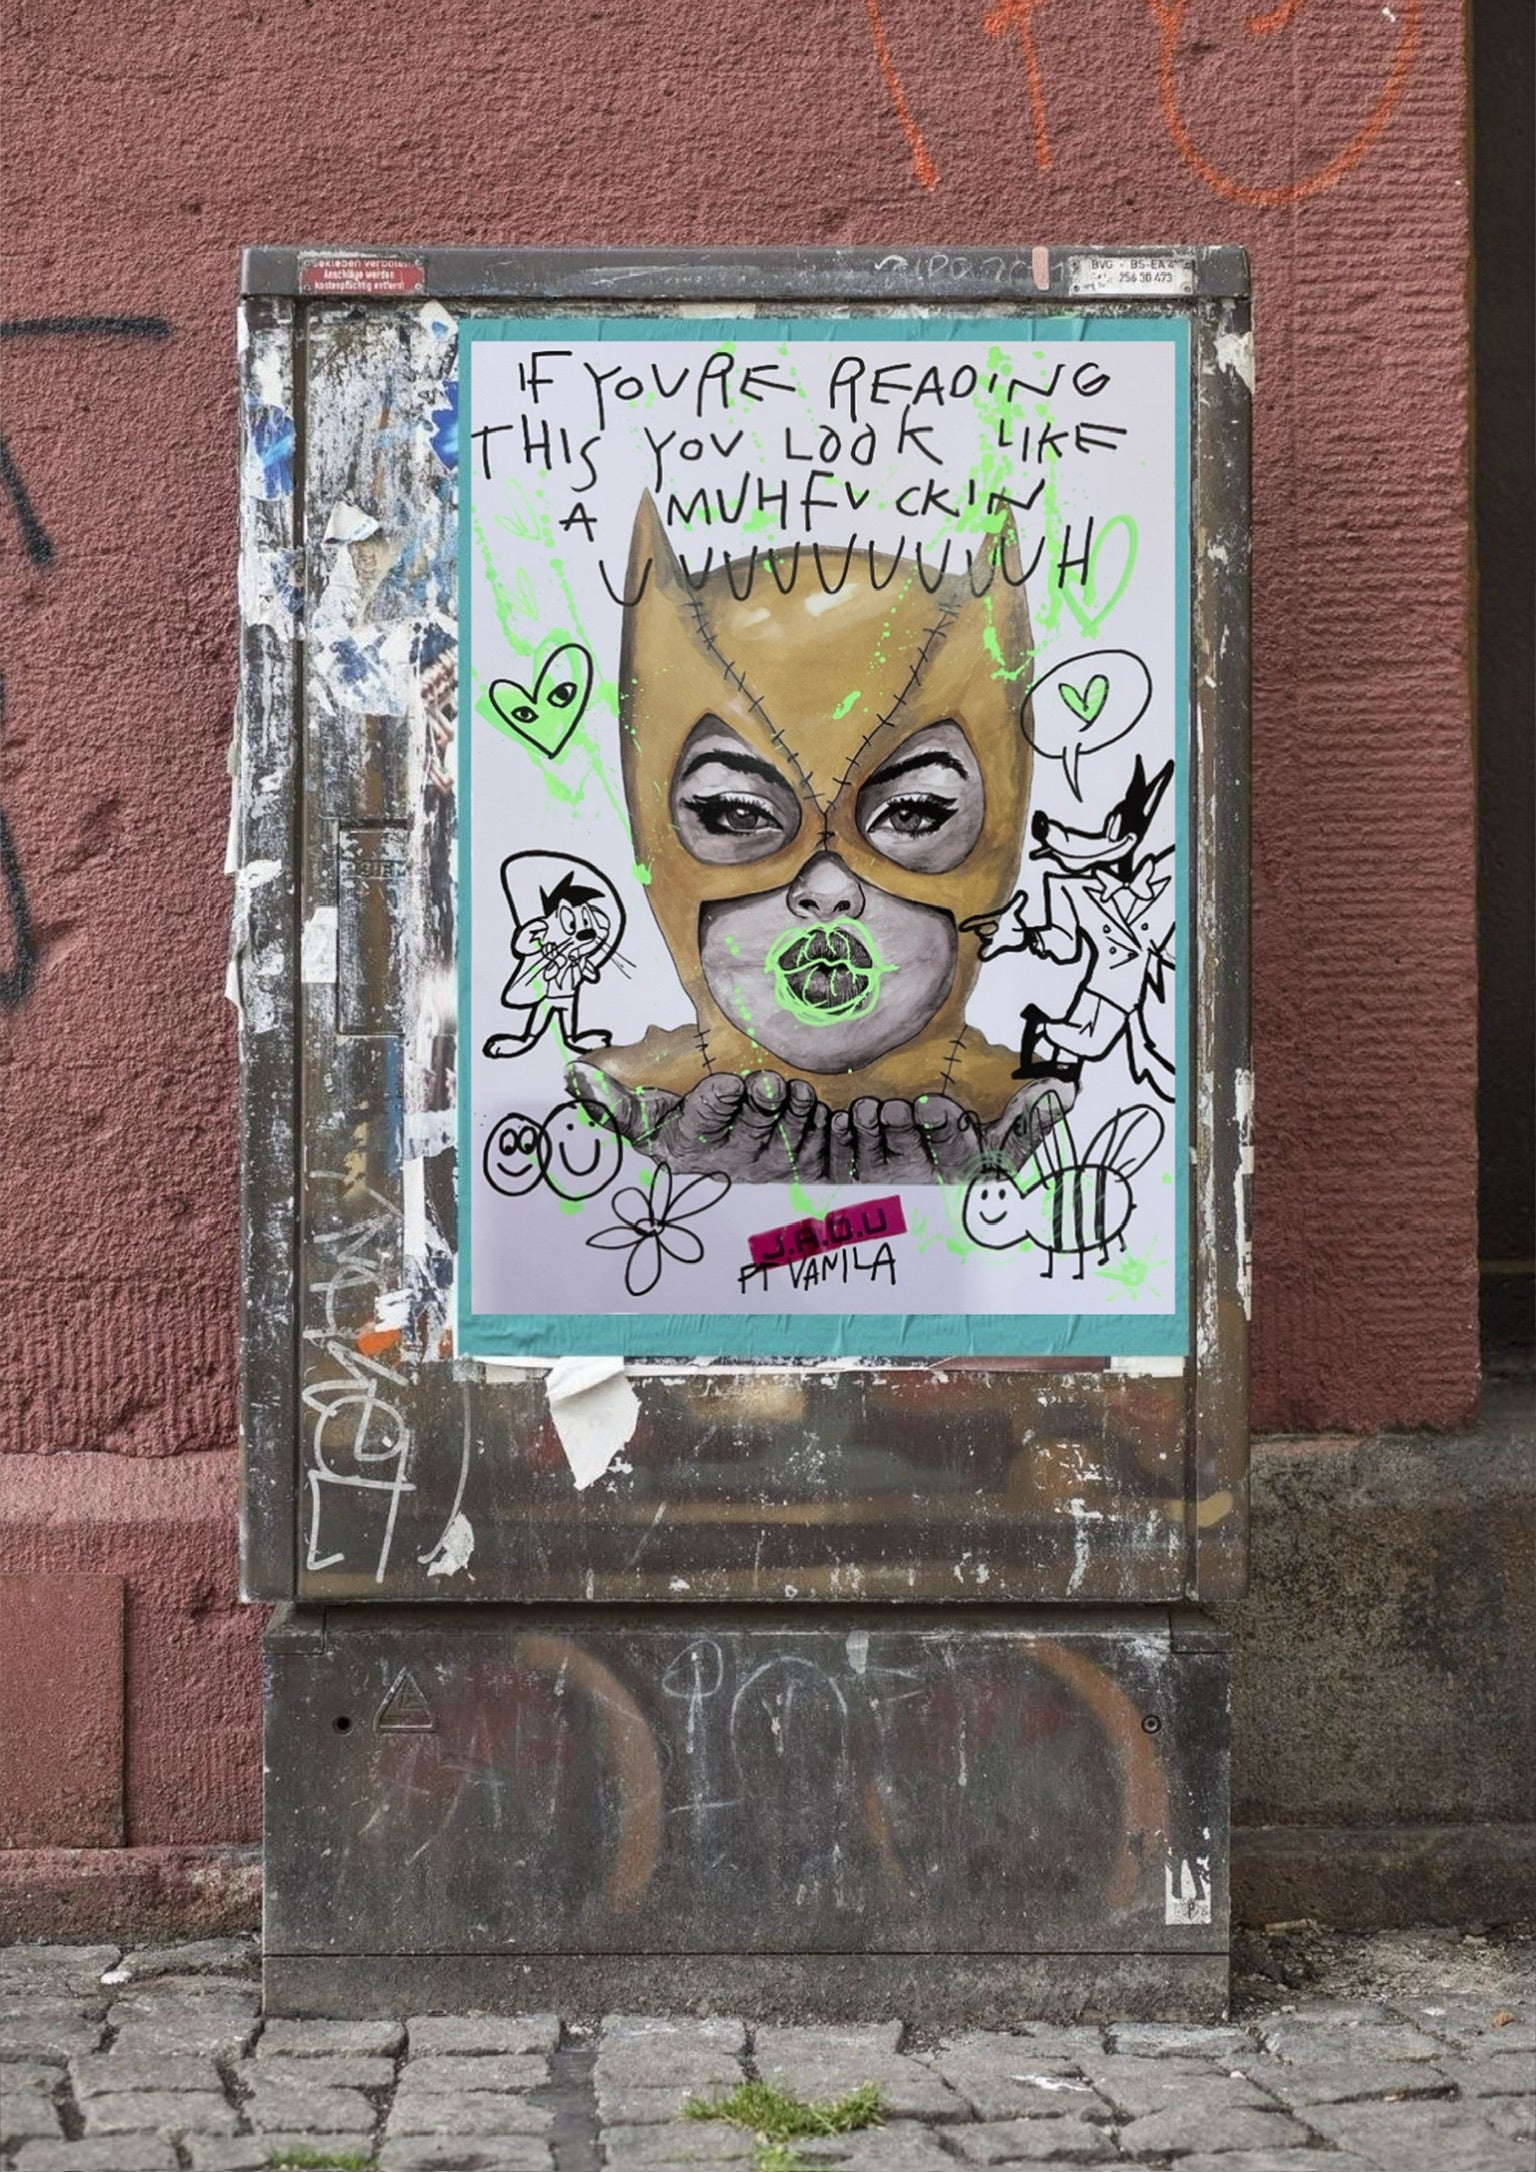 Anschläge werden
kostenpflichtig entfernt
BVG - BS-EA 4
256 30 473
IF YOURE READING
THIS YOU LOOK LIKE
A MUHFUCKIN
UUUUUUUUUH
J.A.D.U
FT VANILA